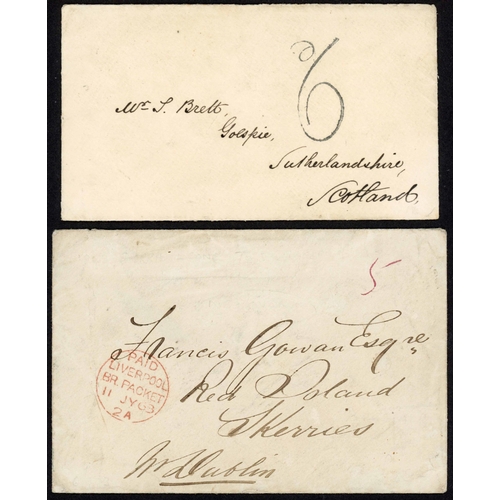 6
Mr. S. Brett,
Golspie,
Sutherlandshire,
Scotland.
5
Francis Gowan Esqre
Red Island
Skerries
Nr Dublin
PAID
LIVERPOOL
BR. PACKET
11 JY 63
2A